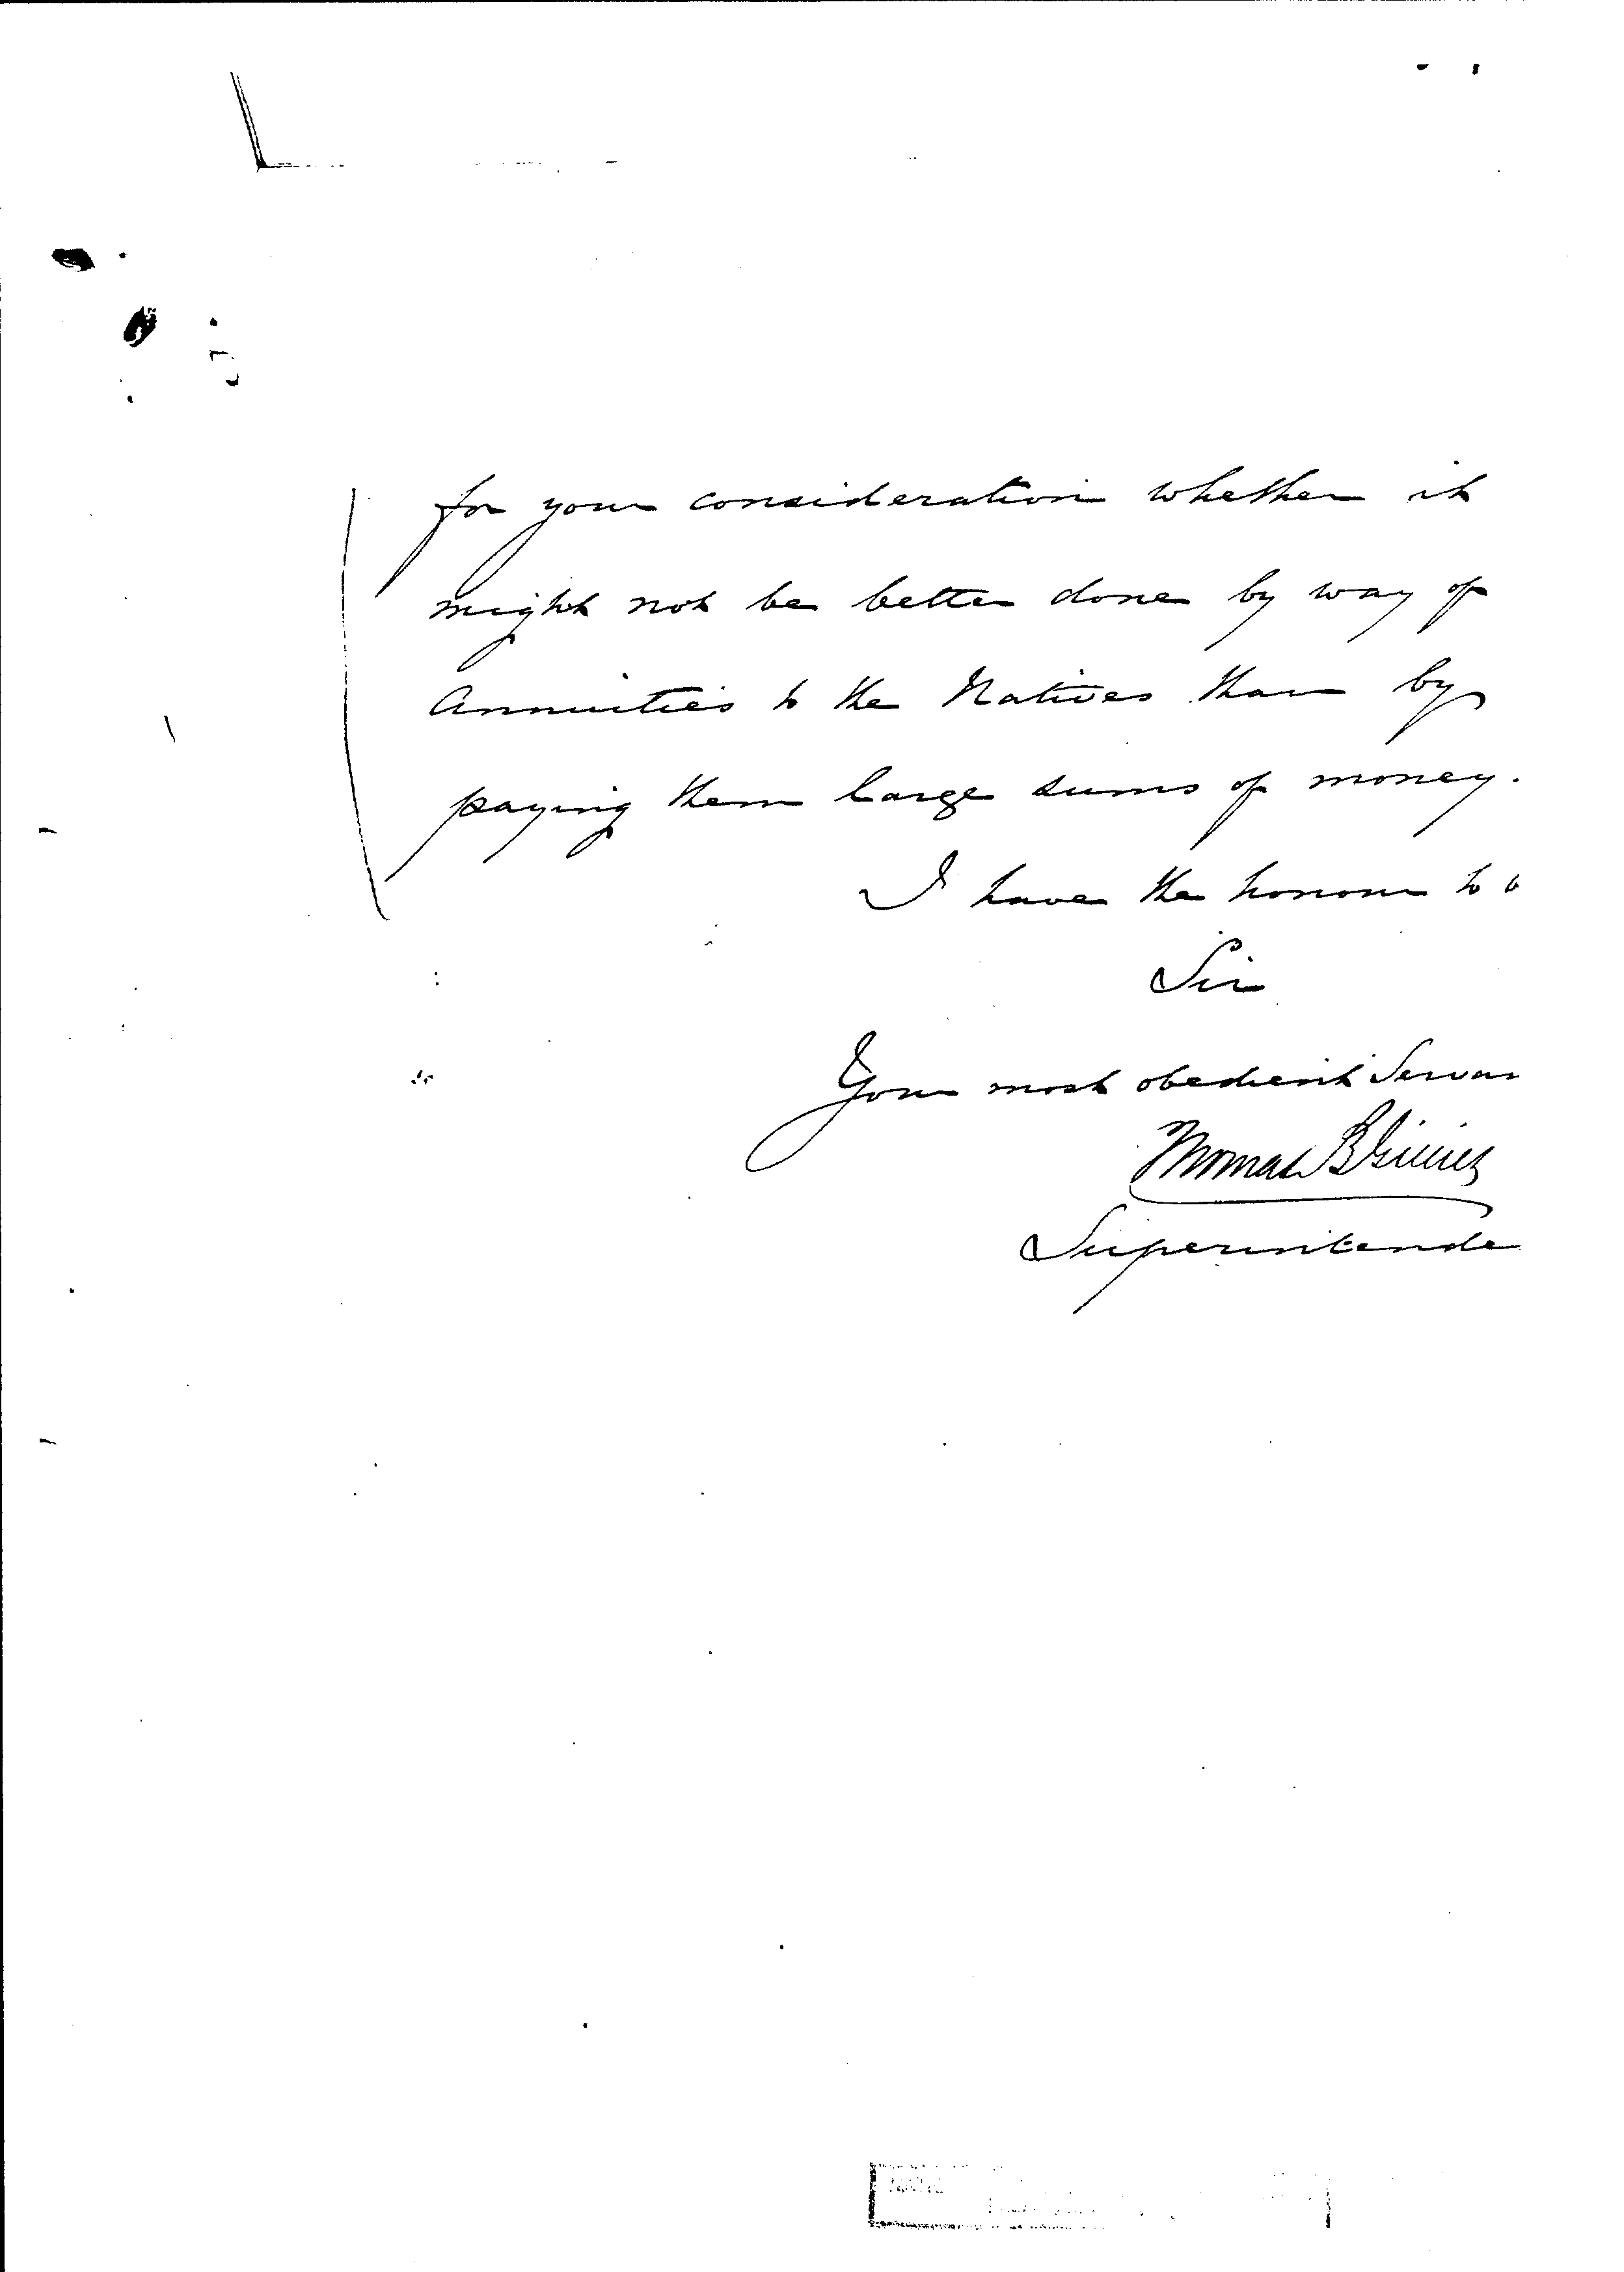 for your consideration whether it
might not be better done by way of
Annuities to the Natives than by
paying them large sums of money.
I have the honour to b
Sir
Your most obedient Servan
Thomas B Gillies
Superintende